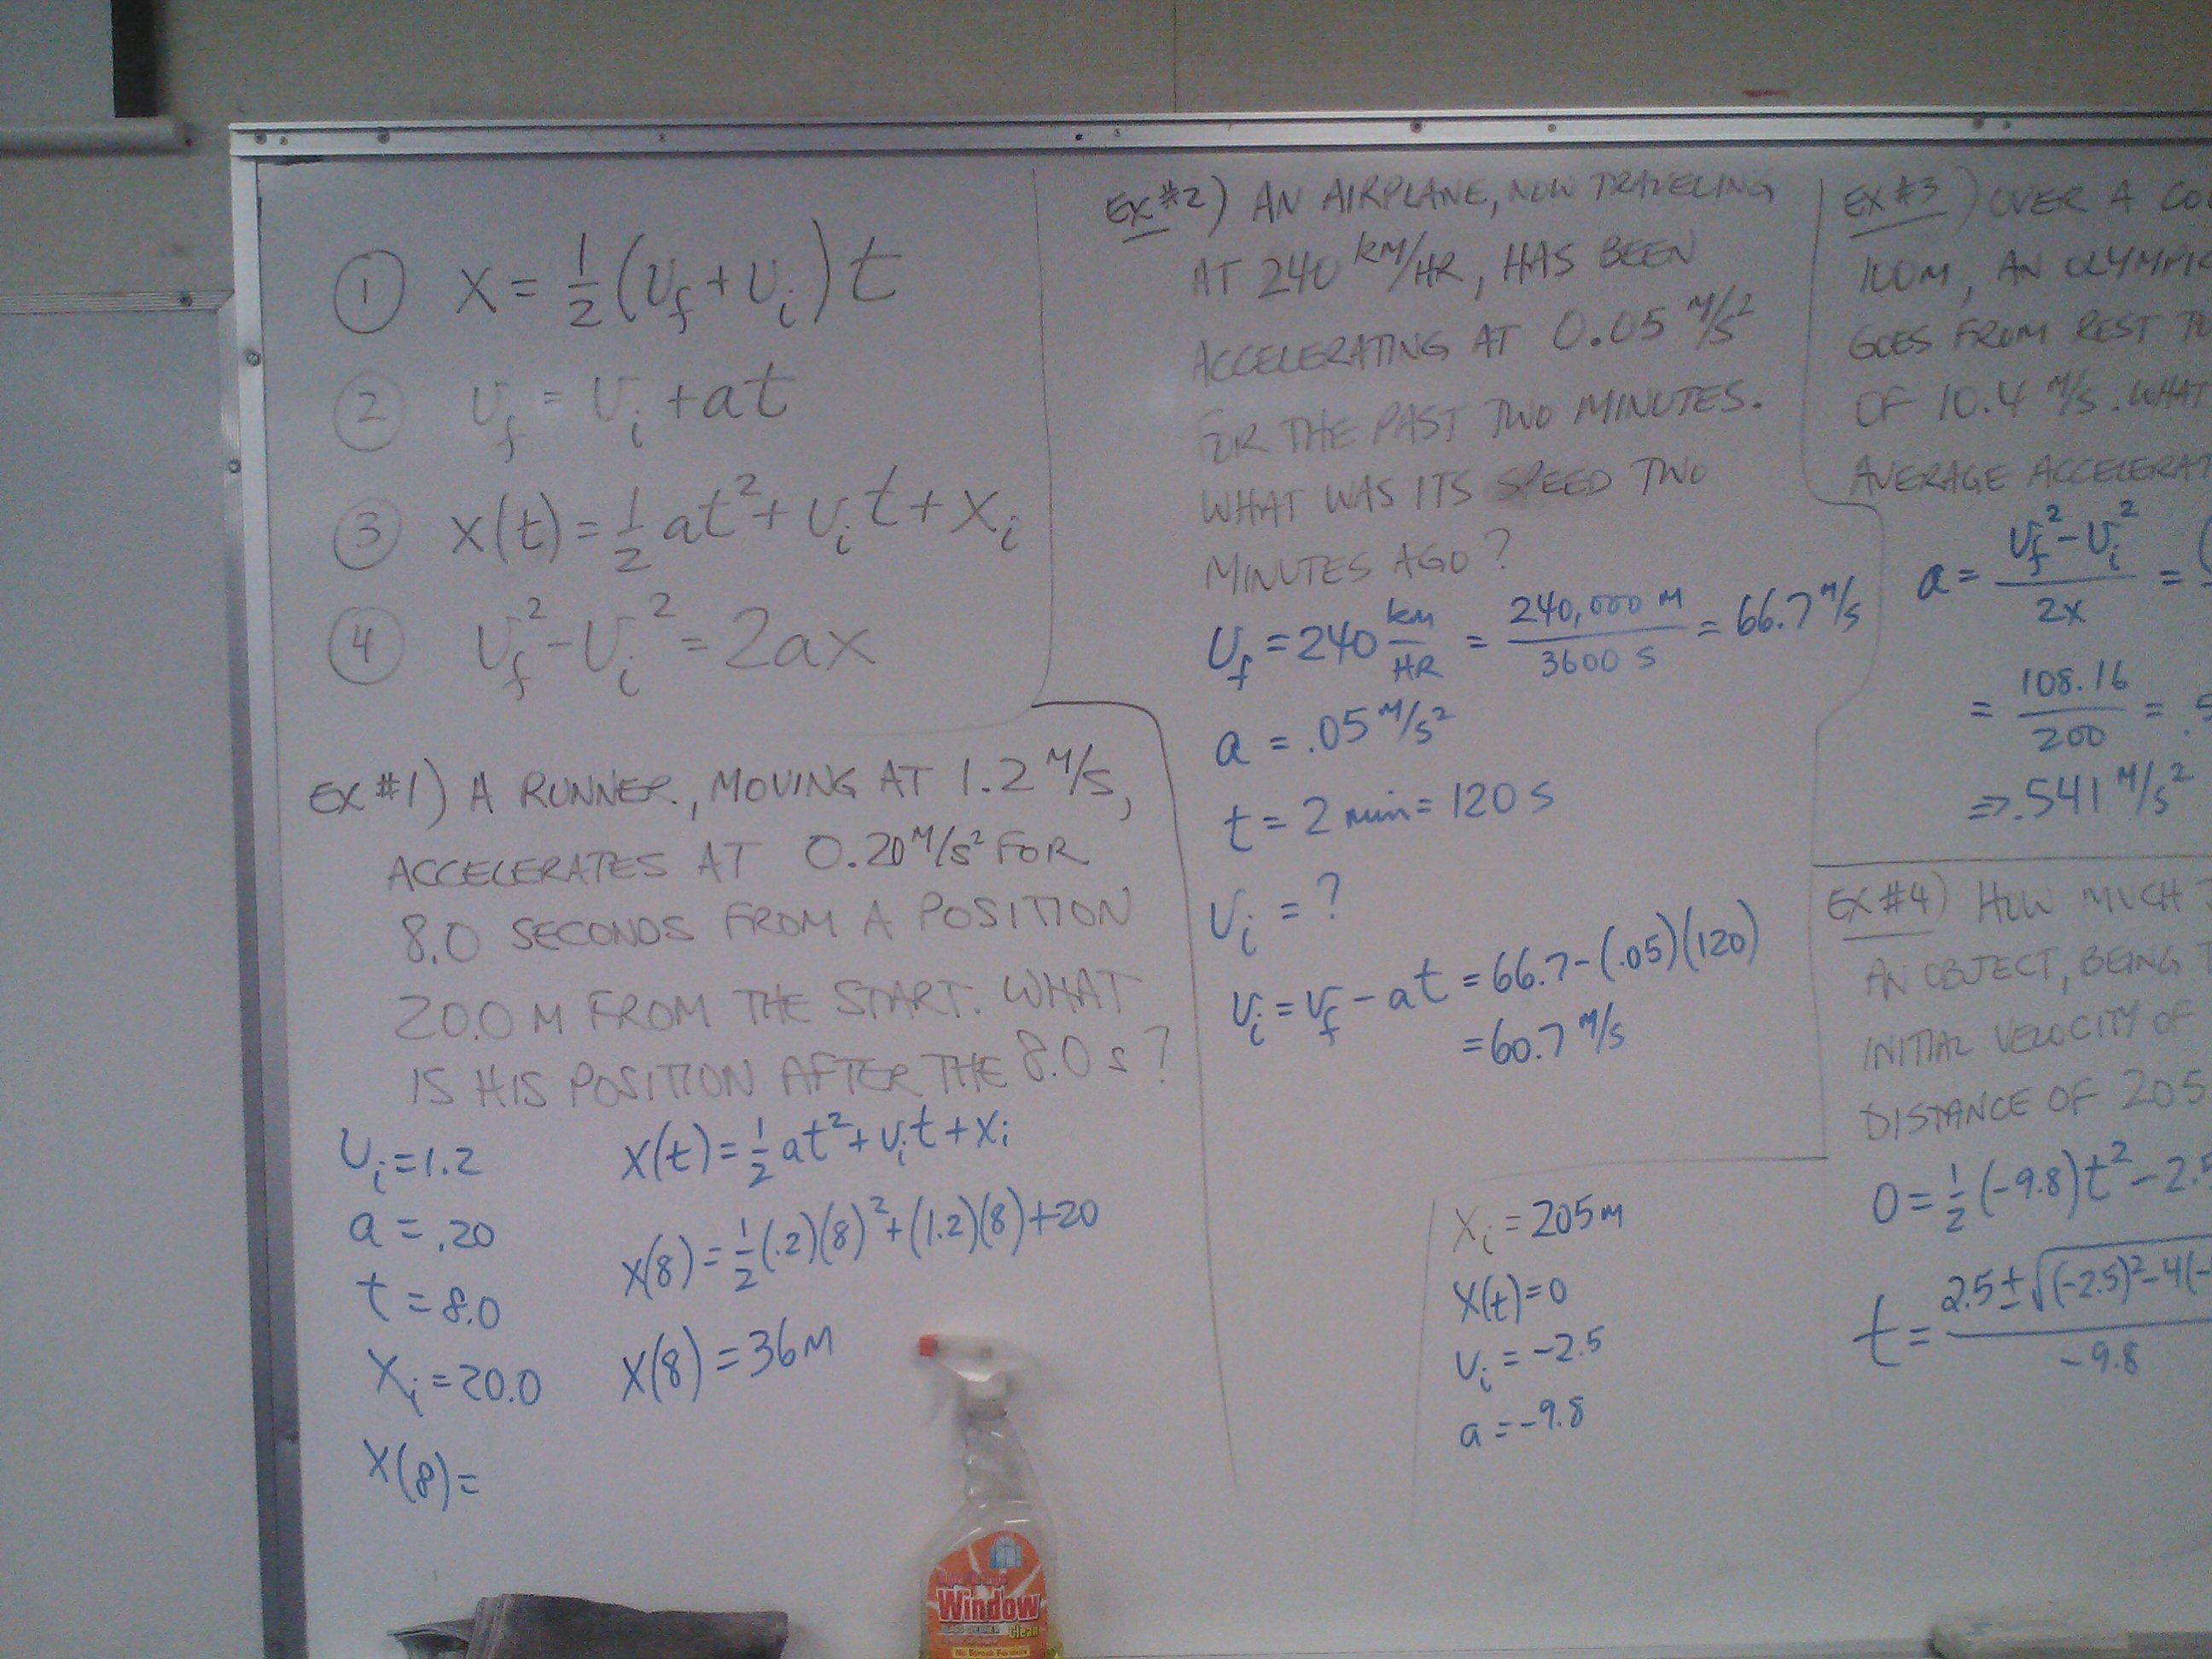 ① x = 1/2 (v_f + v_i) t
② v_f = v_i + at
③ x(t) = 1/2 at² + v_i t + x_i
④ v_f² - v_i² = 2ax
EX #1) A RUNNER, MOVING AT 1.2 M/S,
ACCELERATES AT 0.20 M/S² FOR
8.0 SECONDS FROM A POSITION
20.0 M FROM THE START. WHAT
IS HIS POSITION AFTER THE 8.0 s?
v_i = 1.2
a = .20
t = 8.0
x_i = 20.0
x(8) =
x(t) = 1/2 at² + v_i t + x_i
x(8) = 1/2 (.2)(8)² + (1.2)(8) + 20
x(8) = 36 M
EX #2) AN AIRPLANE, NOW TRAVELING
AT 240 KM/HR, HAS BEEN
ACCELERATING AT 0.05 M/S²
FOR THE PAST TWO MINUTES.
WHAT WAS ITS SPEED TWO
MINUTES AGO?
v_f = 240 km/HR = 240,000 M/3600 S = 66.7 M/S
a = .05 M/S²
t = 2 min = 120 S
v_i = ?
v_i = v_f - at = 66.7 - (.05)(120)
= 60.7 M/S
x_i = 205 M
x(t) = 0
v_i = -2.5
a = -9.8
EX #3) OVER A
100M, AN OLYMPIC
GOES FROM REST
OF 10.4 M/S. WHAT
AVERAGE
a = (v_f² - v_i²)/2x = (
= 108.16/200 = .5
⇒ .541 M/S²
EX #4) HOW MUCH
AN OBJECT, BEING
INITIAL VELOCITY OF
DISTANCE OF 205
0 = 1/2 (-9.8)t² - 2.5
t = 2.5 ± √(-2.5)² - 4(- / -9.8
Window
Clean